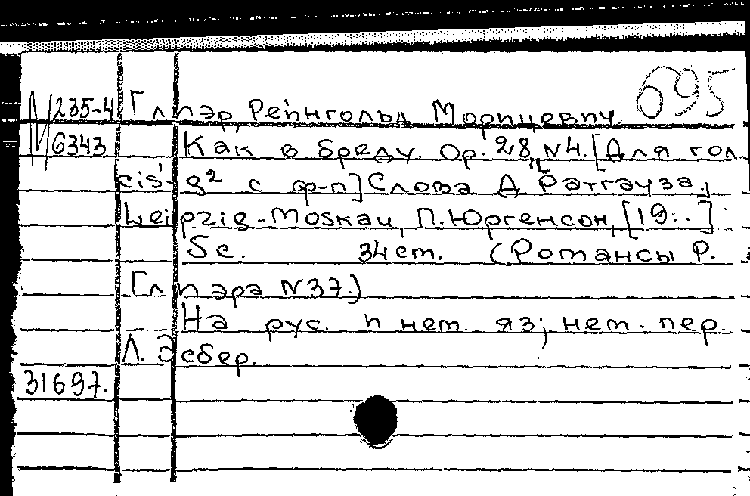 695
М 235-4 Глиэр, Рейнгольд Морицевич
6343 Как в бреду Op. 28, N4. [Для гол
cis'-g² с ф-п] Слова Д. Ратгауза.
Leipzig-Moskau, П. Юргенсон, [19..]
5 с. 34 cm. (Романсы Р.
Глиэра N37.)
На рус. и нем. яз; нем. пер.
Л. Эсбер.
31697.